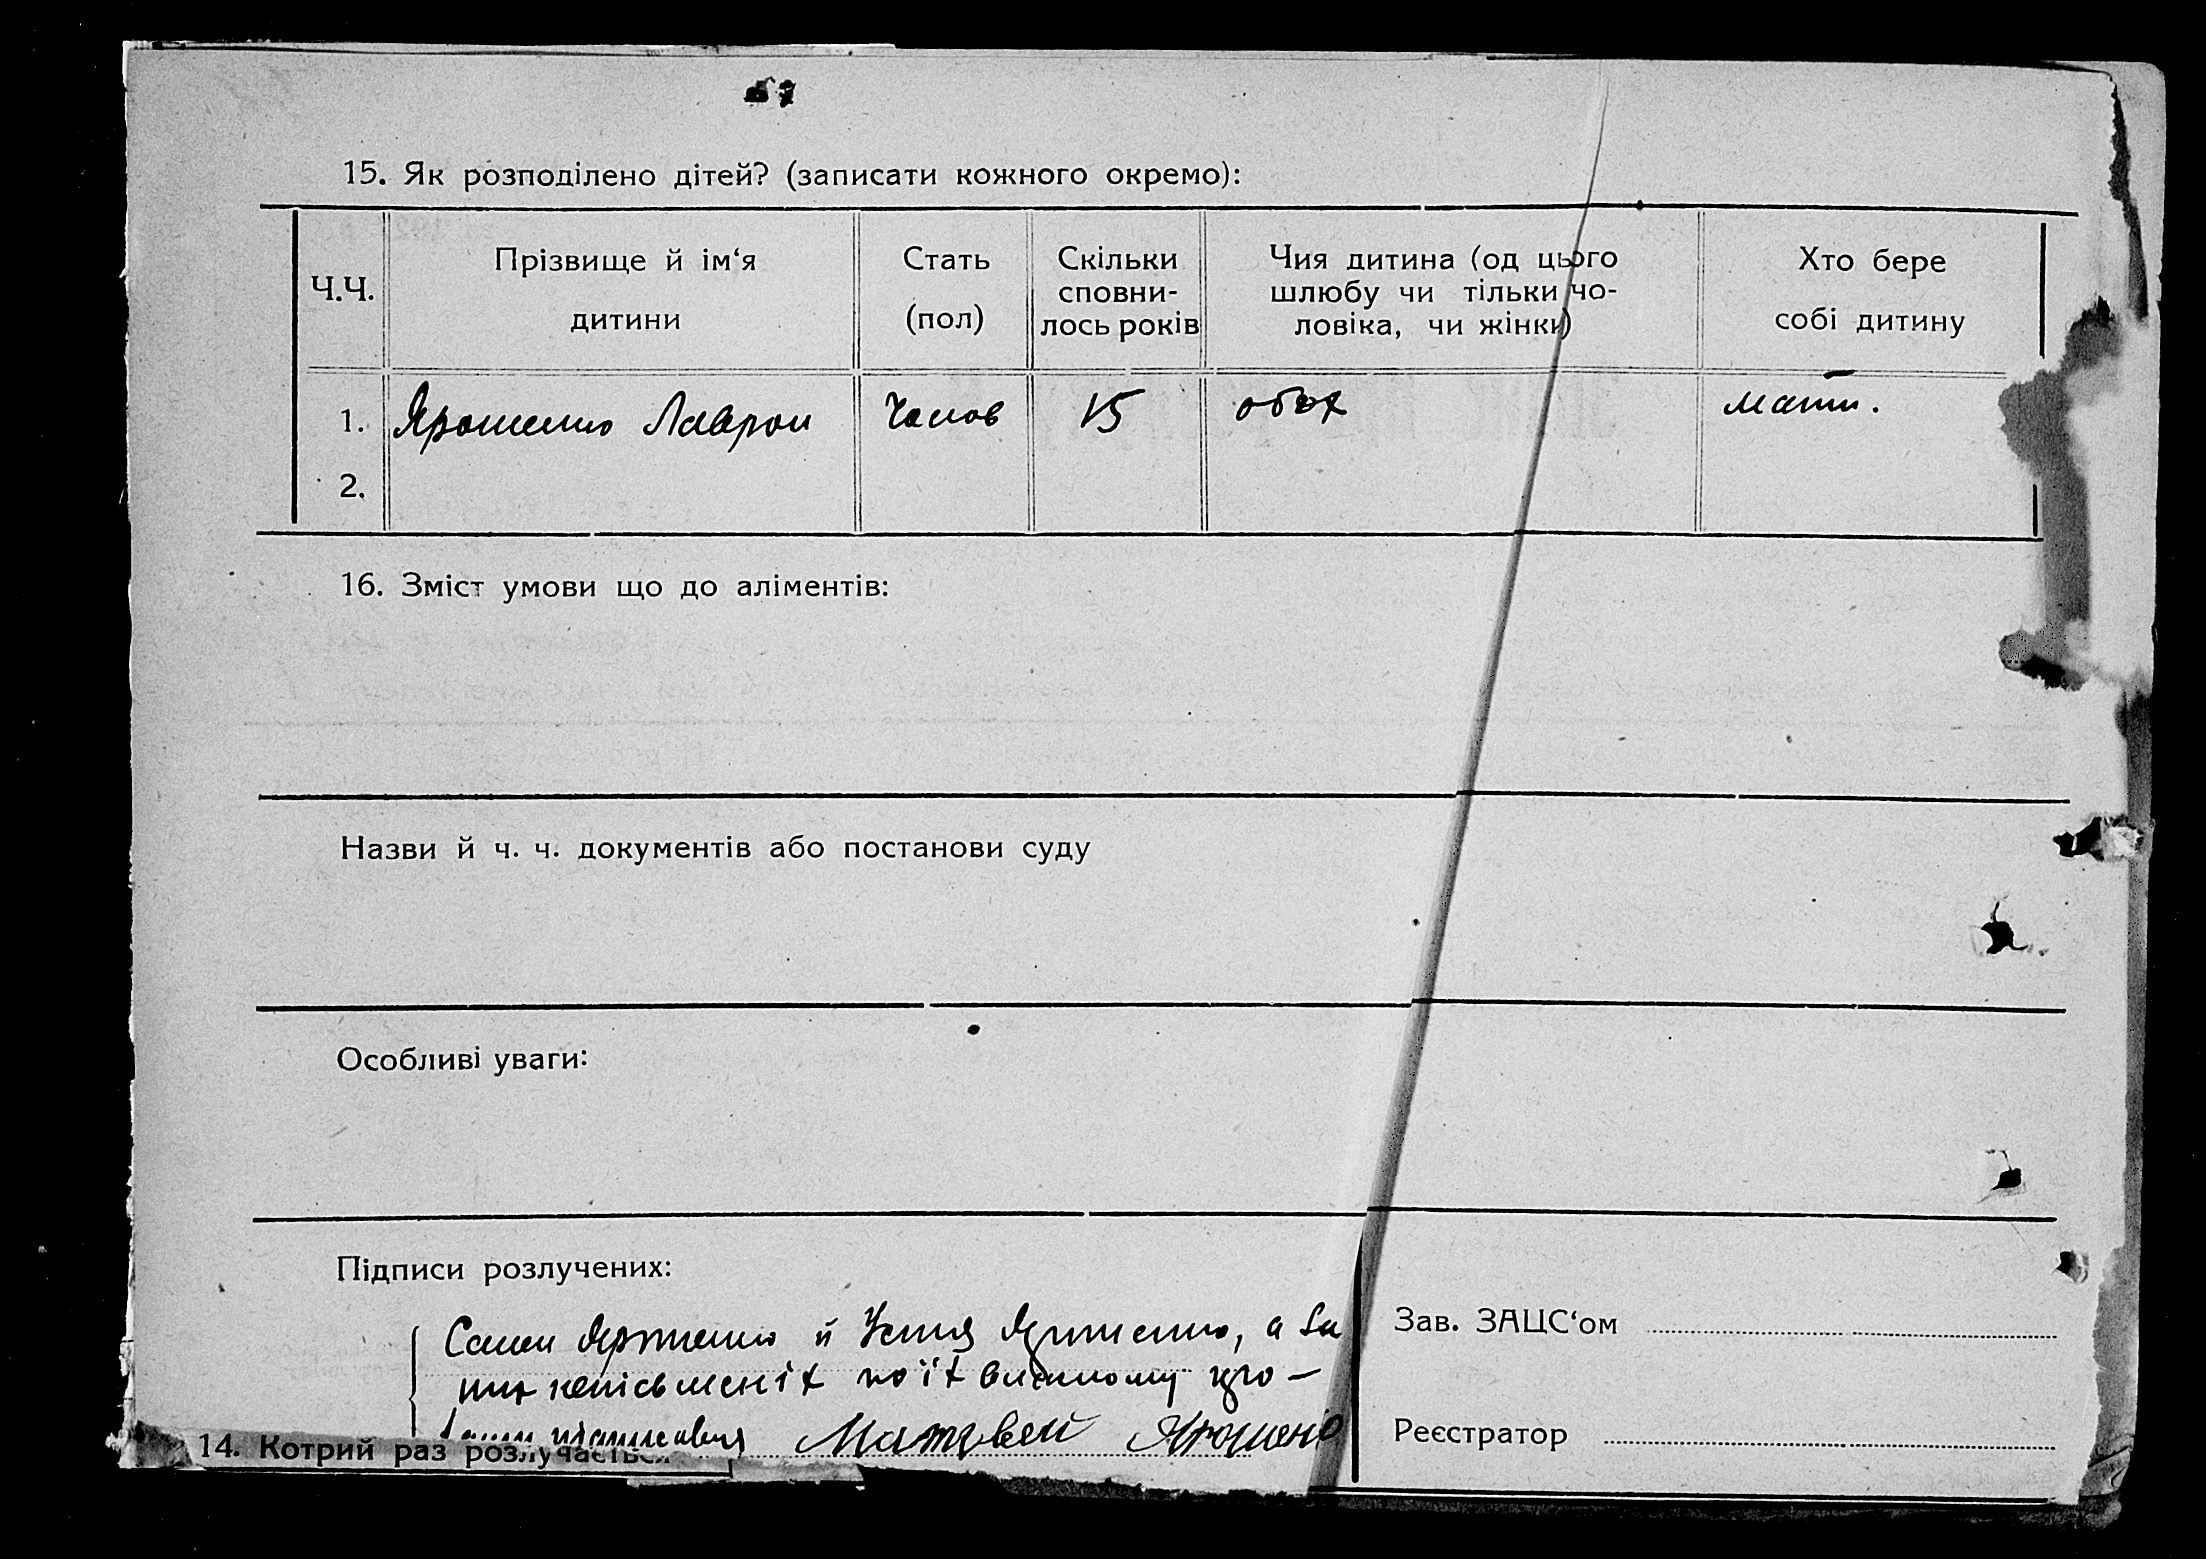 15. Як розподілено дітей? (записати кожного окремо):
Ч.Ч.
Прізвище й ім‘я
дитини
Стать
(пол)
Скільки
сповни-
лось років
Чия дитина (од цього
шлюбу чи тільки чо-
ловіка, чи жінки)
Хто бере
собі дитину
1. Ярошенко Лаврон Чолов 15 обох мати.
2.
16. Зміст умови що до аліментів:
Назви й ч. ч. документів або постанови суду
Особливі уваги:
Підписи розлучених:
Ярошенко й Устя Ярошенко, а за
них неписьменіх по їх власному про-
Матвей Ярошено
Зав. ЗАЦС‘ом
Реєстратор
14. Котрий раз розлучається